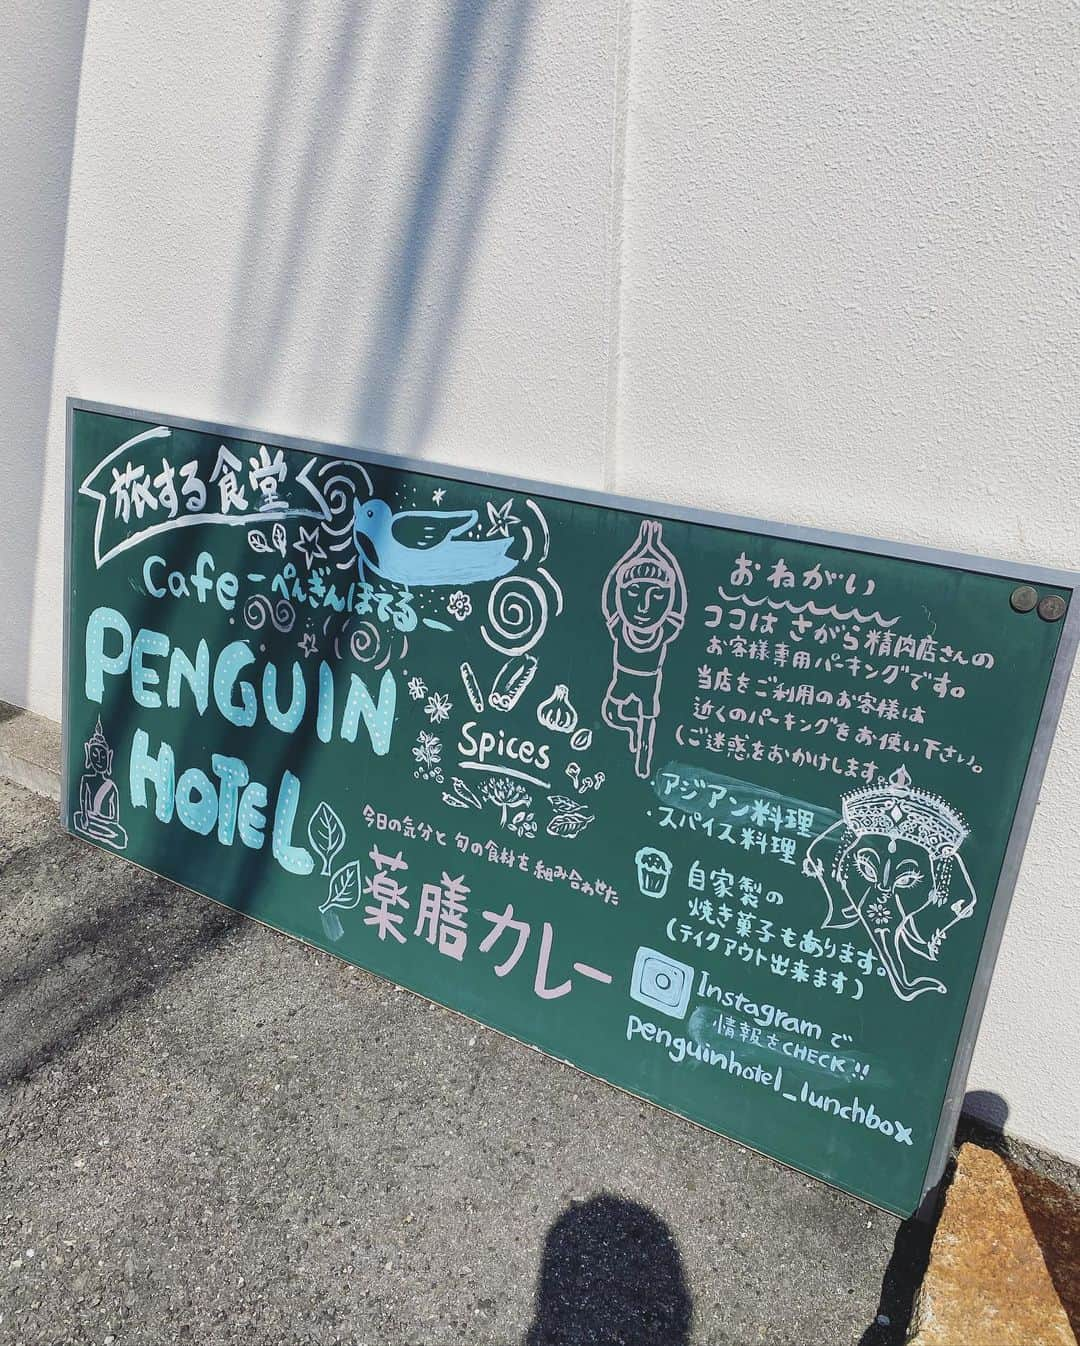 旅する食堂
Cafe -ぺんぎんほてる-
PENGUIN
HOTEL
Spices
今日の気分と旬の食材を組み合わせた
薬膳カレー
おねがい
ココは さがら精肉店さんの
お客様専用パーキングです。
当店をご利用のお客様は
近くのパーキングをお使い下さい。
(ご迷惑をおかけします。)
・アジアン料理
・スパイス料理
自家製の
焼き菓子もあります。
(テイクアウト出来ます)
Instagramで
情報をCHECK!!
penguinhotel_lunchbox